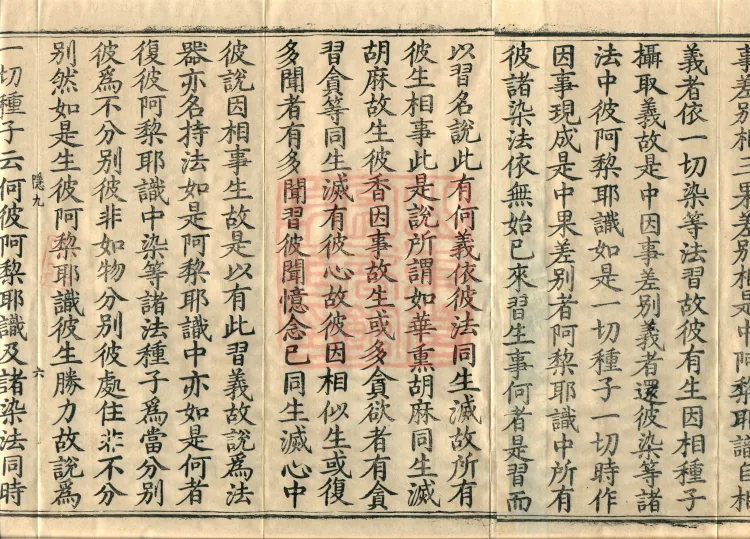 事差別相三果差別相是中阿黎耶識自相
義者依一切染等法習故彼有生因相種子
攝取義故是中因事差別義者還彼染等諸
法中彼阿黎耶識如是一切種子一切時作
因事現成是中果差別者阿黎耶識中所有
彼諸染法依無始已來習生事何者是習而
以習名說此有何義依彼法同生滅故所有
彼生相事此是說所謂如華熏胡麻同生滅
胡麻故生彼香因事故生或多貪欲者有貪
習貪等同生滅有彼心故彼因相似生或復
多聞者有多聞習彼聞憶念已同生滅心中
彼說因相事生故是以有此習義故說爲法
器亦名持法如是阿黎耶識中亦如是何者
復彼阿黎耶識中染等諸法種子爲當分別
彼爲不分別彼非如物分別彼處住非不分
別然如是生彼阿黎耶識彼生勝力故說爲
隱九 六
一切種子云何彼阿黎耶識及諸染法同時